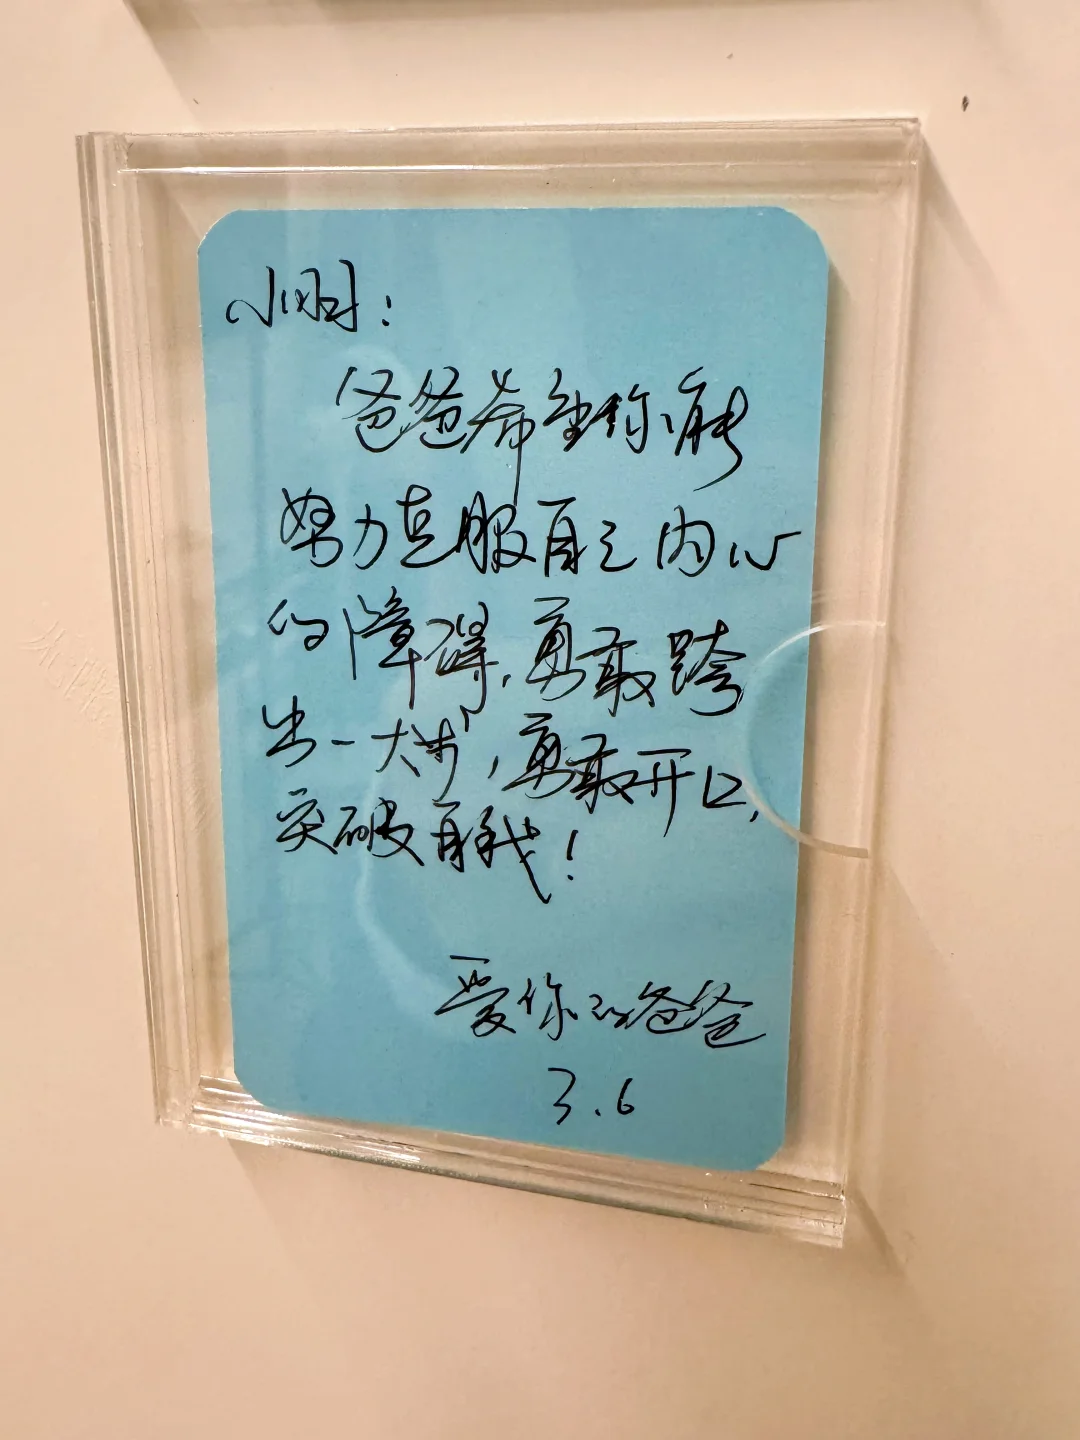 小明：
爸爸希望你能
努力克服自己内心
的障碍，勇敢跨
出一大步，勇敢开口，
突破自我！
爱你的爸爸
3.6